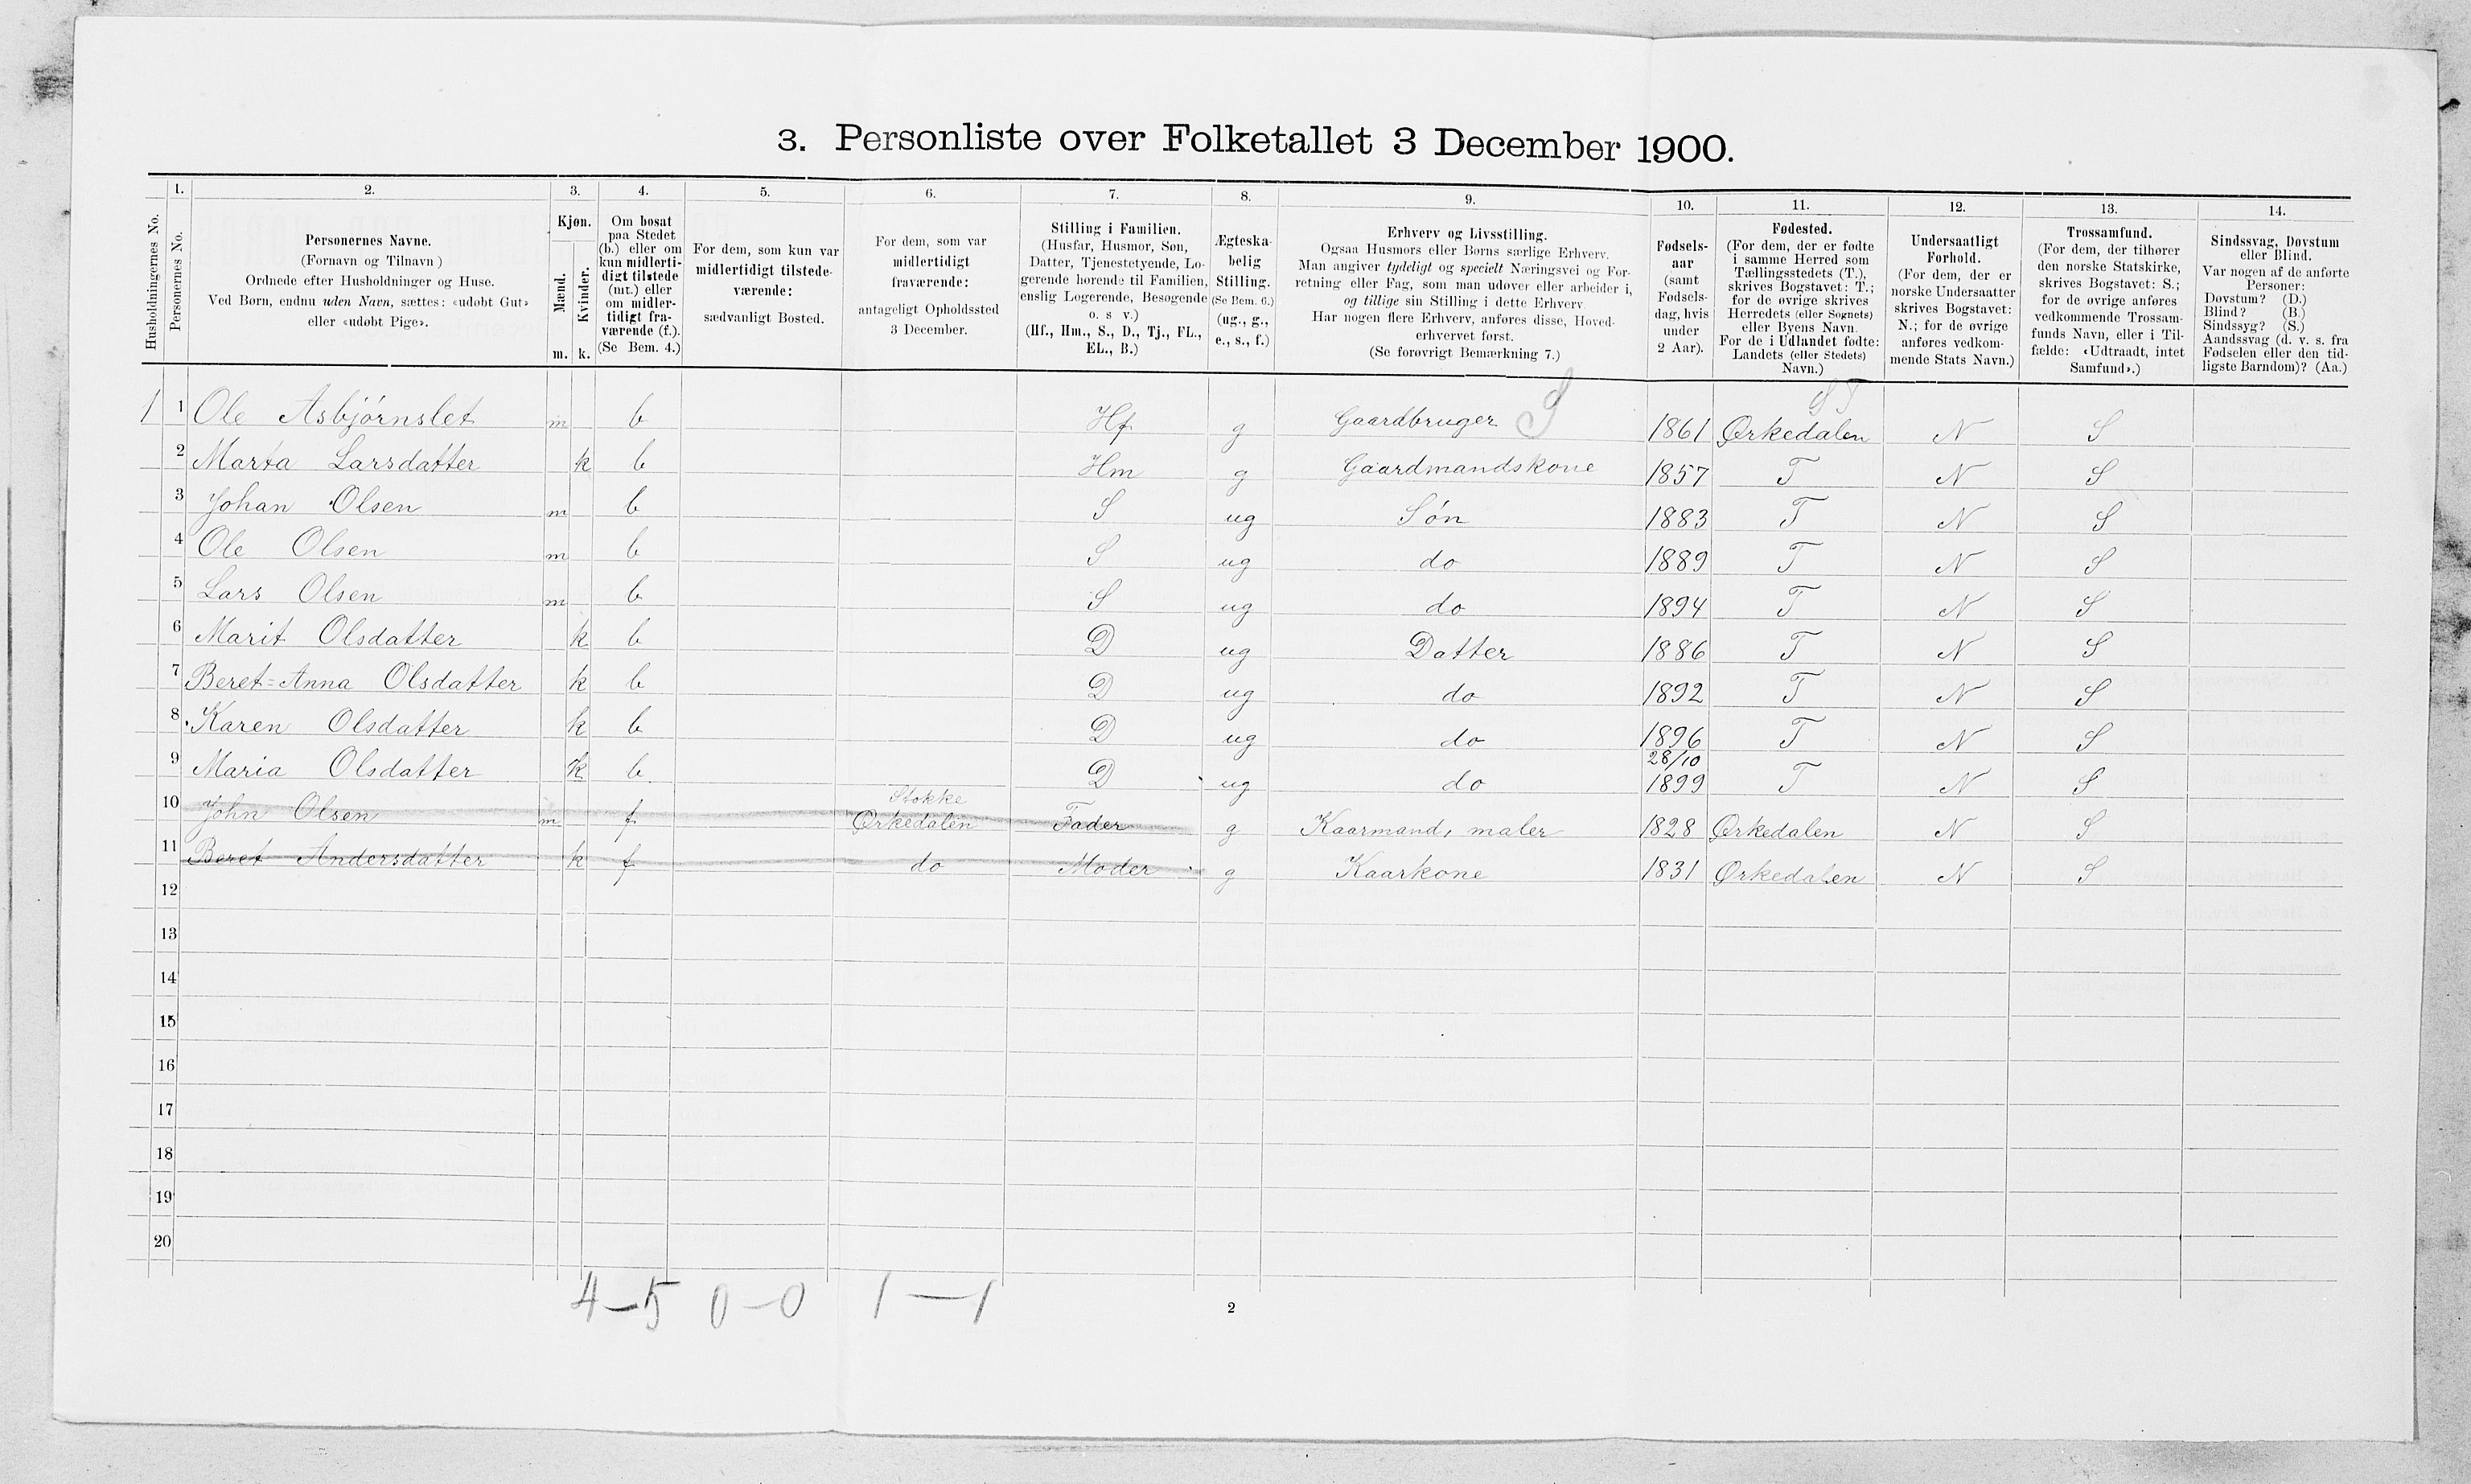 3. Personliste over Folketallet 3 December 1900.
1. 2. 3. 4. 5. 6. 7. 8. 9. 10. 11. 12. 13. 14.
Husholdningernes No.
Personernes No.
Personernes Navne.
(Fornavn og Tilnavn)
Ordnede efter Husholdninger og Huse.
Ved Børn, endnu uden Navn, sættes: «udøbt Gut»
eller «udøbt Pige».
Kjøn.
Mænd.
Kvinder.
m. k.
Om bosat
paa Stedet
(b.) eller om
kun midlerti-
digt tilstede
(mt.) eller
om midler-
tidigt fra-
værende (f.).
(Se Bem. 4.)
For dem, som kun var
midlertidigt tilstede-
værende:
sædvanligt Bosted.
For dem, som var
midlertidigt
fraværende:
antageligt Opholdssted
3 December.
Stilling i Familien.
(Husfar, Husmor, Søn,
Datter, Tjenestetyende, Lo-
gerende hørende til Familien,
enslig Logerende, Besøgende
o. s v.)
(Hf., Hm., S., D., Tj., FL.,
EL., B.)
Ægteska-
belig
Stilling.
(Se Bem. 6.)
(ug., g.,
e., s., f.)
Erhverv og Livsstilling.
Ogsaa Husmors eller Børns særlige Erhverv.
Man angiver tydeligt og specielt Næringsvei og For-
retning eller Fag, som man udøver eller arbeider i,
og tillige sin Stilling i dette Erhverv.
Har nogen flere Erhverv, anføres disse, Hoved-
erhvervet først.
(Se forøvrigt Bemærkning 7.)
Fødsels-
aar
(samt
Fødsels-
dag, hvis
under
2 Aar).
Fødested.
(For dem, der er fødte
i samme Herred som
Tællingsstedets (T.),
skrives Bogstavet: T.;
for de øvrige skrives
Herredets (eller Sognets)
eller Byens Navn.
For de i Udlandet fødte:
Landets (eller Stedets)
Navn.)
Undersaatligt
Forhold.
(For dem, der er
norske Undersaatter
skrives Bogstavet:
N.; for de øvrige
anføres vedkom-
mende Stats Navn.)
Trossamfund.
(For dem, der tilhører
den norske Statskirke,
skrives Bogstavet: S.;
for de øvrige anføres
vedkommende Trossam-
funds Navn, eller i Til-
fælde: «Udtraadt, intet
Samfund».)
Sindssvag, Døvstum
eller Blind.
Var nogen af de anførte
Personer:
Døvstum? (D.)
Blind? (B.)
Sindssyg? (S.)
Aandssvag (d. v. s. fra
Fødselen eller den tid-
ligste Barndom)? (Aa.)
1 1 Ole Asbjørnslet m b Hf g Gaardbruger S 1861 Ørkedalen N S
2 Marta Larsdatter k b Hm g Gaardmandskone 1857 T N S
3 Johan Olsen m b S ug Søn 1883 T N S
4 Ole Olsen m b S ug do 1889 T N S
5 Lars Olsen m b S ug do 1894 T N S
6 Marit Olsdatter k b D ug Datter 1886 T N S
7 Beret=Anna Olsdatter k b D ug do 1892 T N S
8 Karen Olsdatter k b D ug do 1896 T N S
9 Maria Olsdatter k b D ug do 28/10 1899 T N S
10 John Olsen m f Stokke Ørkedalen Fader g Kaarmand, maler 1828 Ørkedalen N S
11 Beret Andersdatter k f do Moder g Kaarkone 1831 Ørkedalen N S
12
13
14
15
16
17
18
19
20
4-5 0-0 1-1
2